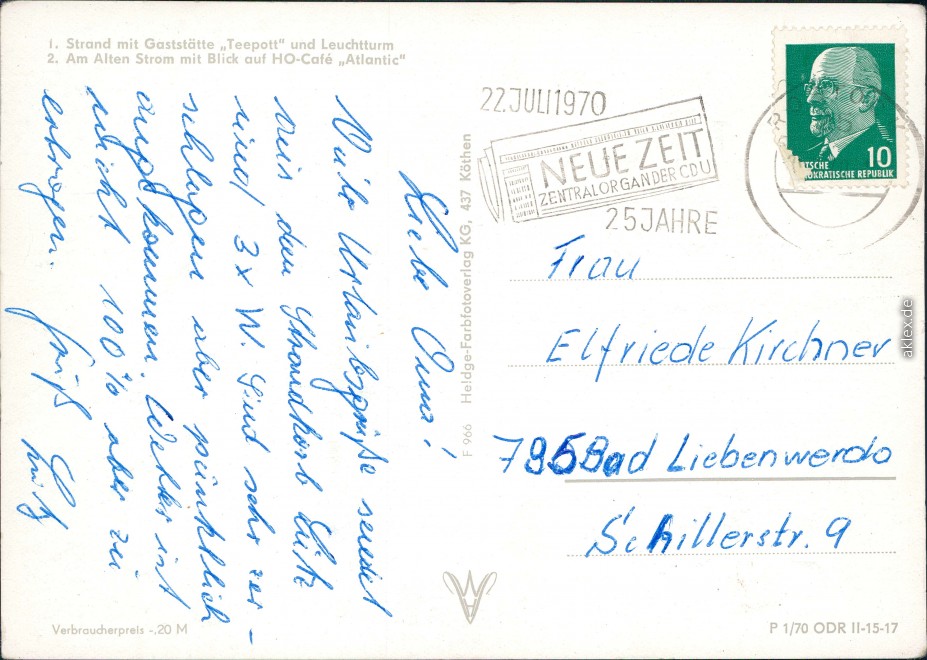 1. Strand mit Gaststätte „Teepott" und Leuchtturm
2. Am Alten Strom mit Blick auf HO-Café „Atlantic"
Liebe Oma!
Viele Urlaubsgrüße sendet
aus dem Strandkorb Lutz
und 3x W. Sind sehr zer-
schlagen aber pünktlich
angekommen. Wetter ist
nicht 100% aber zu
ertragen.
Gruß Lutz
F 966 Heldge-Farbfotoverlag KG, 437 Köthen
22.JULI1970
NEUE ZEIT
ZENTRALORGAN DER CDU
25 JAHRE
10
TSCHE
OKRATISCHE REPUBLIK
Frau
Elfriede Kirchner
795 Bad Liebenwerda
Schillerstr. 9
Verbraucherpreis -,20 M
P 1/70 ODR II-15-17
aklex.de